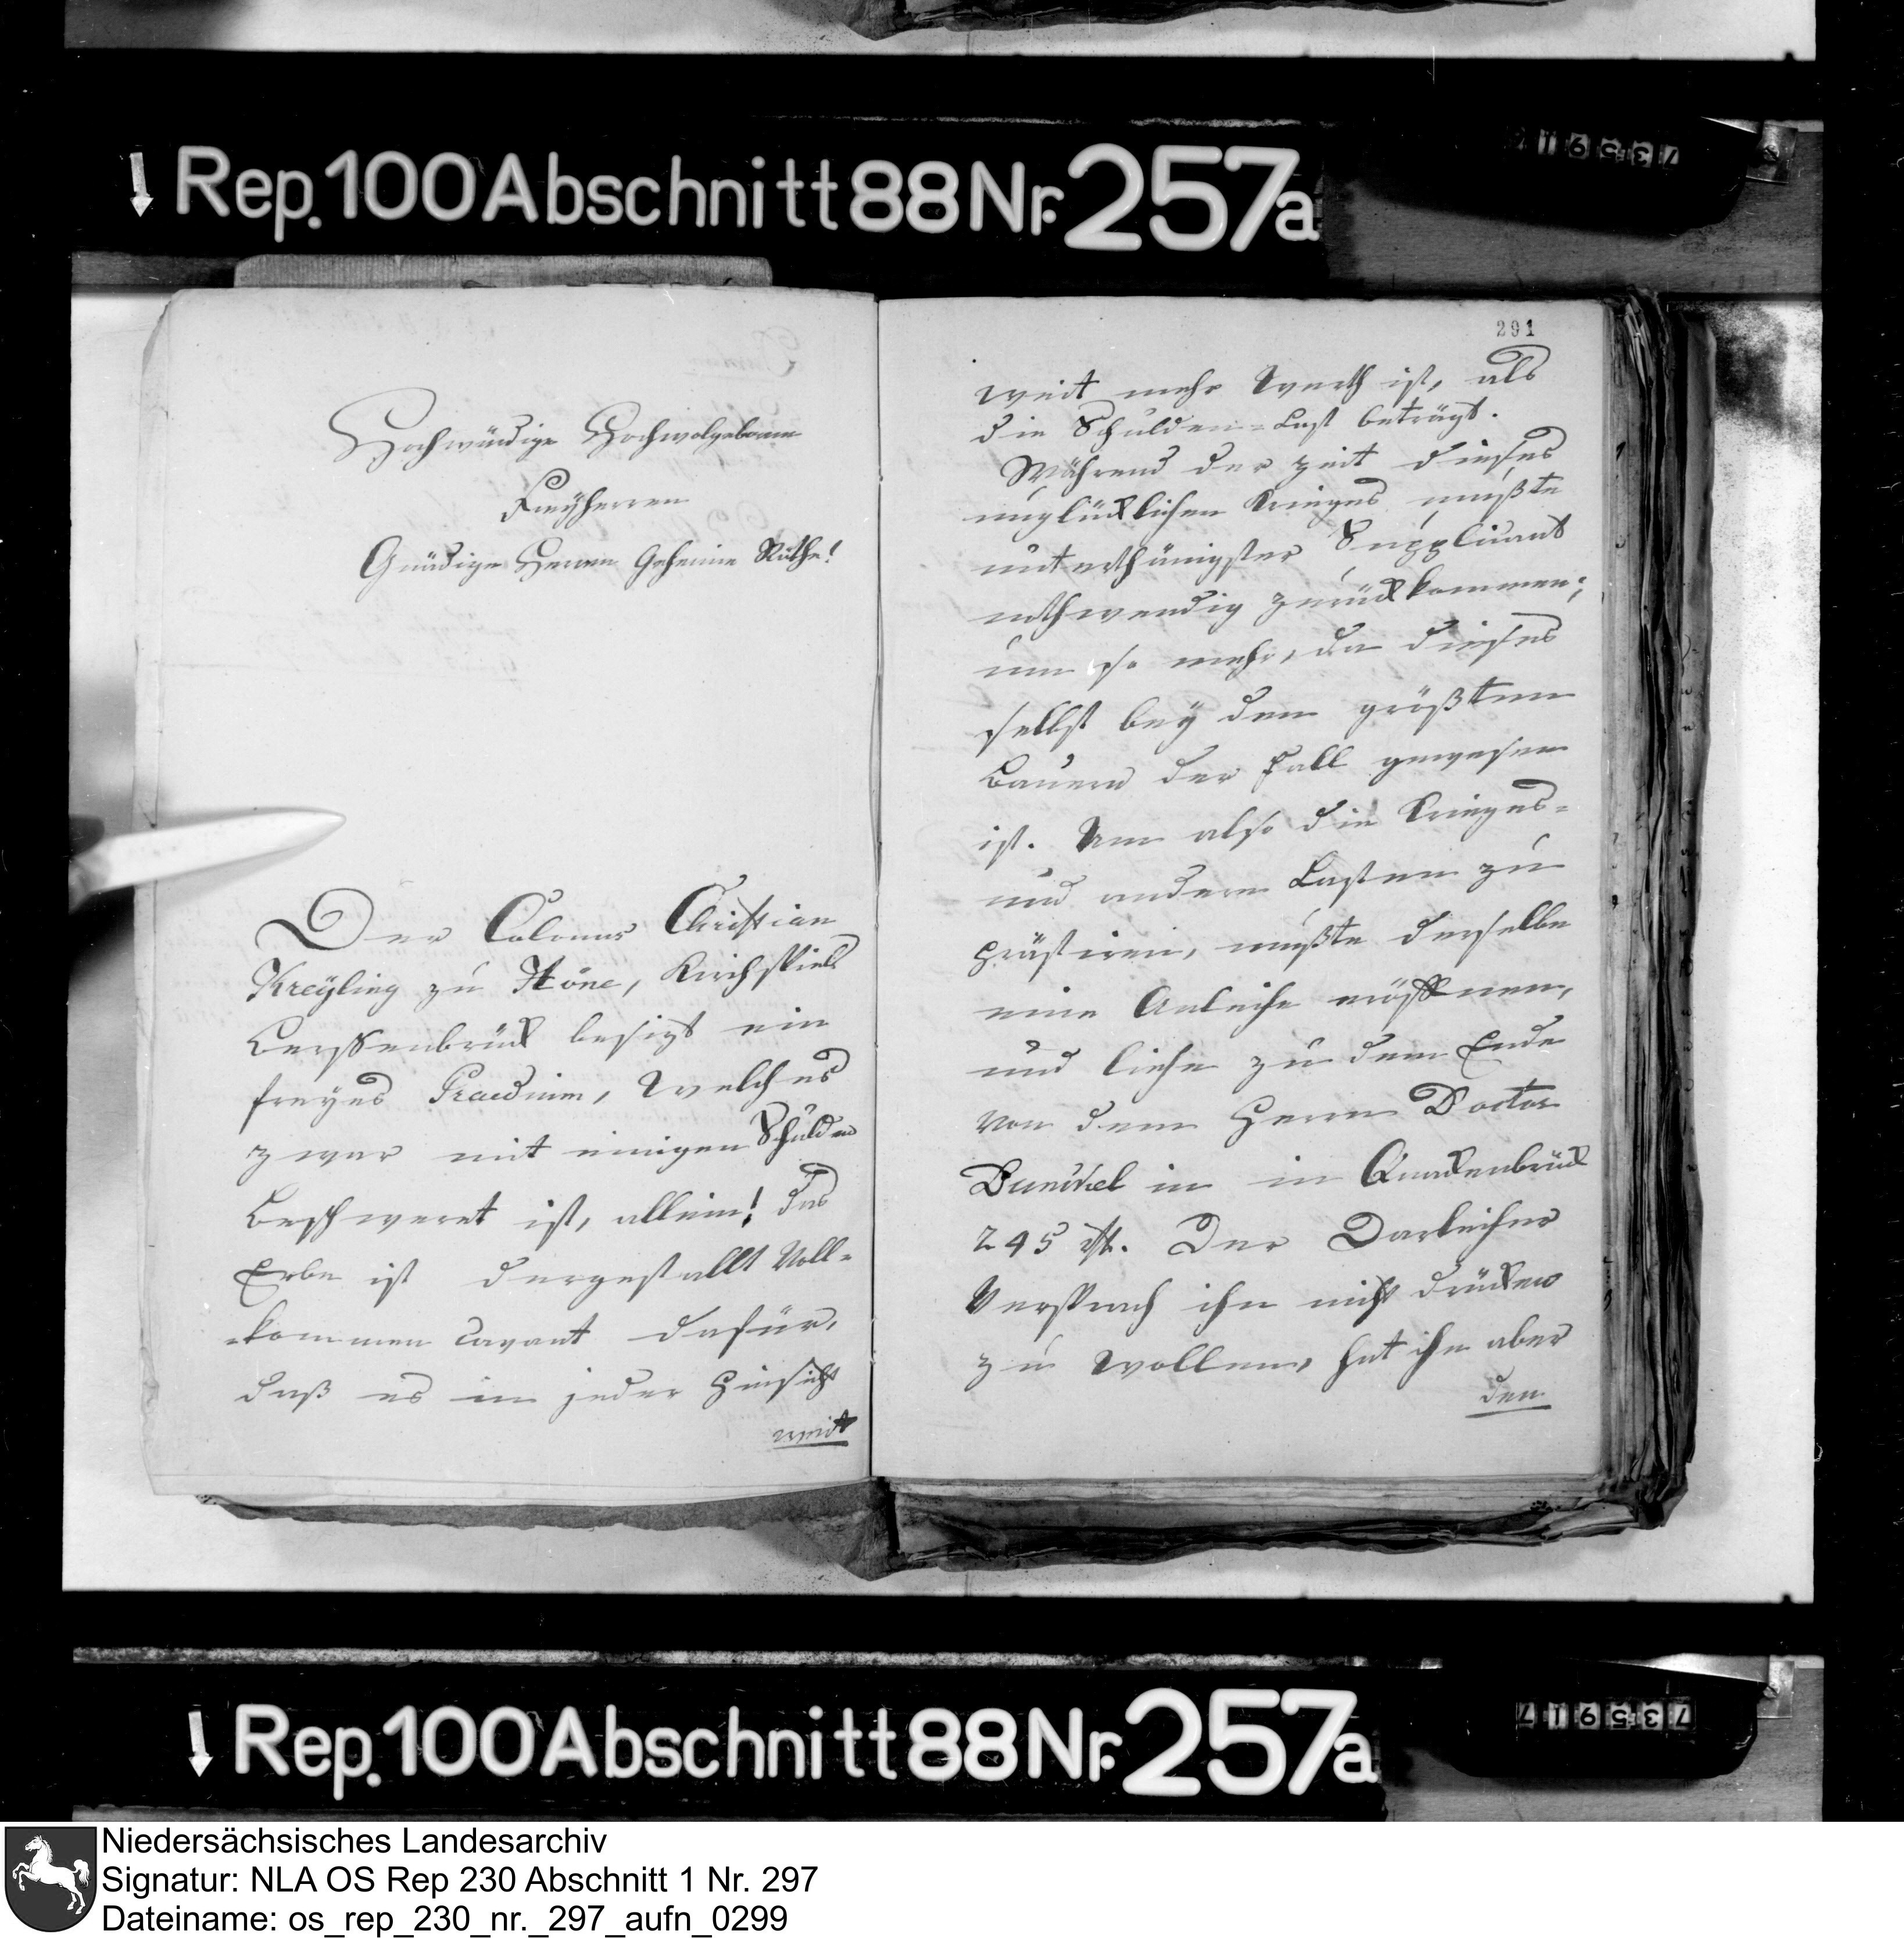 Rep. 100 Abschnitt 88 Nr. 257a
735917
Hochwürdige Hochwolgeborne
Freÿherren
Gnädige Herren Geheime Räthe!
Der Colonus Christian
Kreÿling zu Höne, Kirchspiels
Berssenbrück besizt ein
freyes Praedium, welches
zwar mit einigen Schulden
beschweret ist, allein! das
Erbe ist dergestallt voll-
-kommen cavant dafür,
daß es in jeder Hinsicht
weit
291
weit mehr werth ist, als
die Schulden-Last beträgt.
Während der Zeit dieses
unglücklichen Krieges mußte
unterthänigster Supplicant
nothwendig zurückkommen;
um so mehr, da dieses
selbst beÿ den größten
Bauern der Fall gewesen
ist. Um also die Krieges-
und andere Lasten zu
prästiren, mußte derselbe
eine Anleihe eröffnen,
und liehe zu dem Ende
von dem Herrn Doctor
in in Quackenbrück
245 rt. Der Darleiher
versprach ihn nicht drücken
zu wollen, hat ihn aber
den
Rep. 100 Abschnitt 88 Nr. 257a
735917
Niedersächsisches Landesarchiv
Signatur: NLA OS Rep 230 Abschnitt 1 Nr. 297
Dateiname: os_rep_230_nr._297_aufn_0299